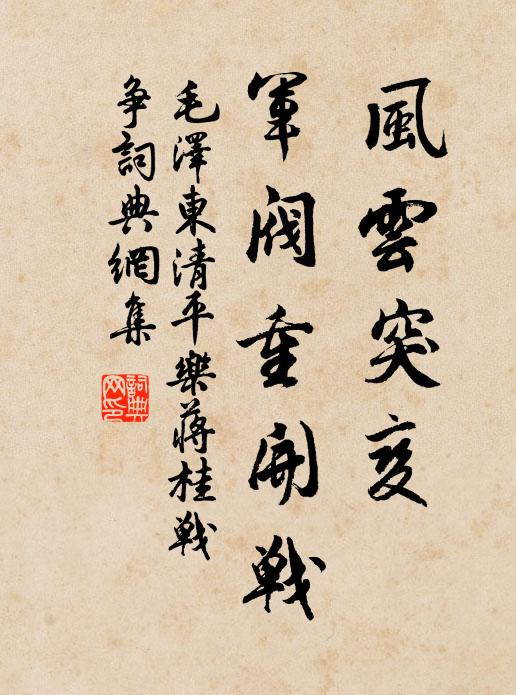 風雲突变
軍閥重開戰
毛澤東清平樂蔣桂戰
争詞典網集
詞典网印